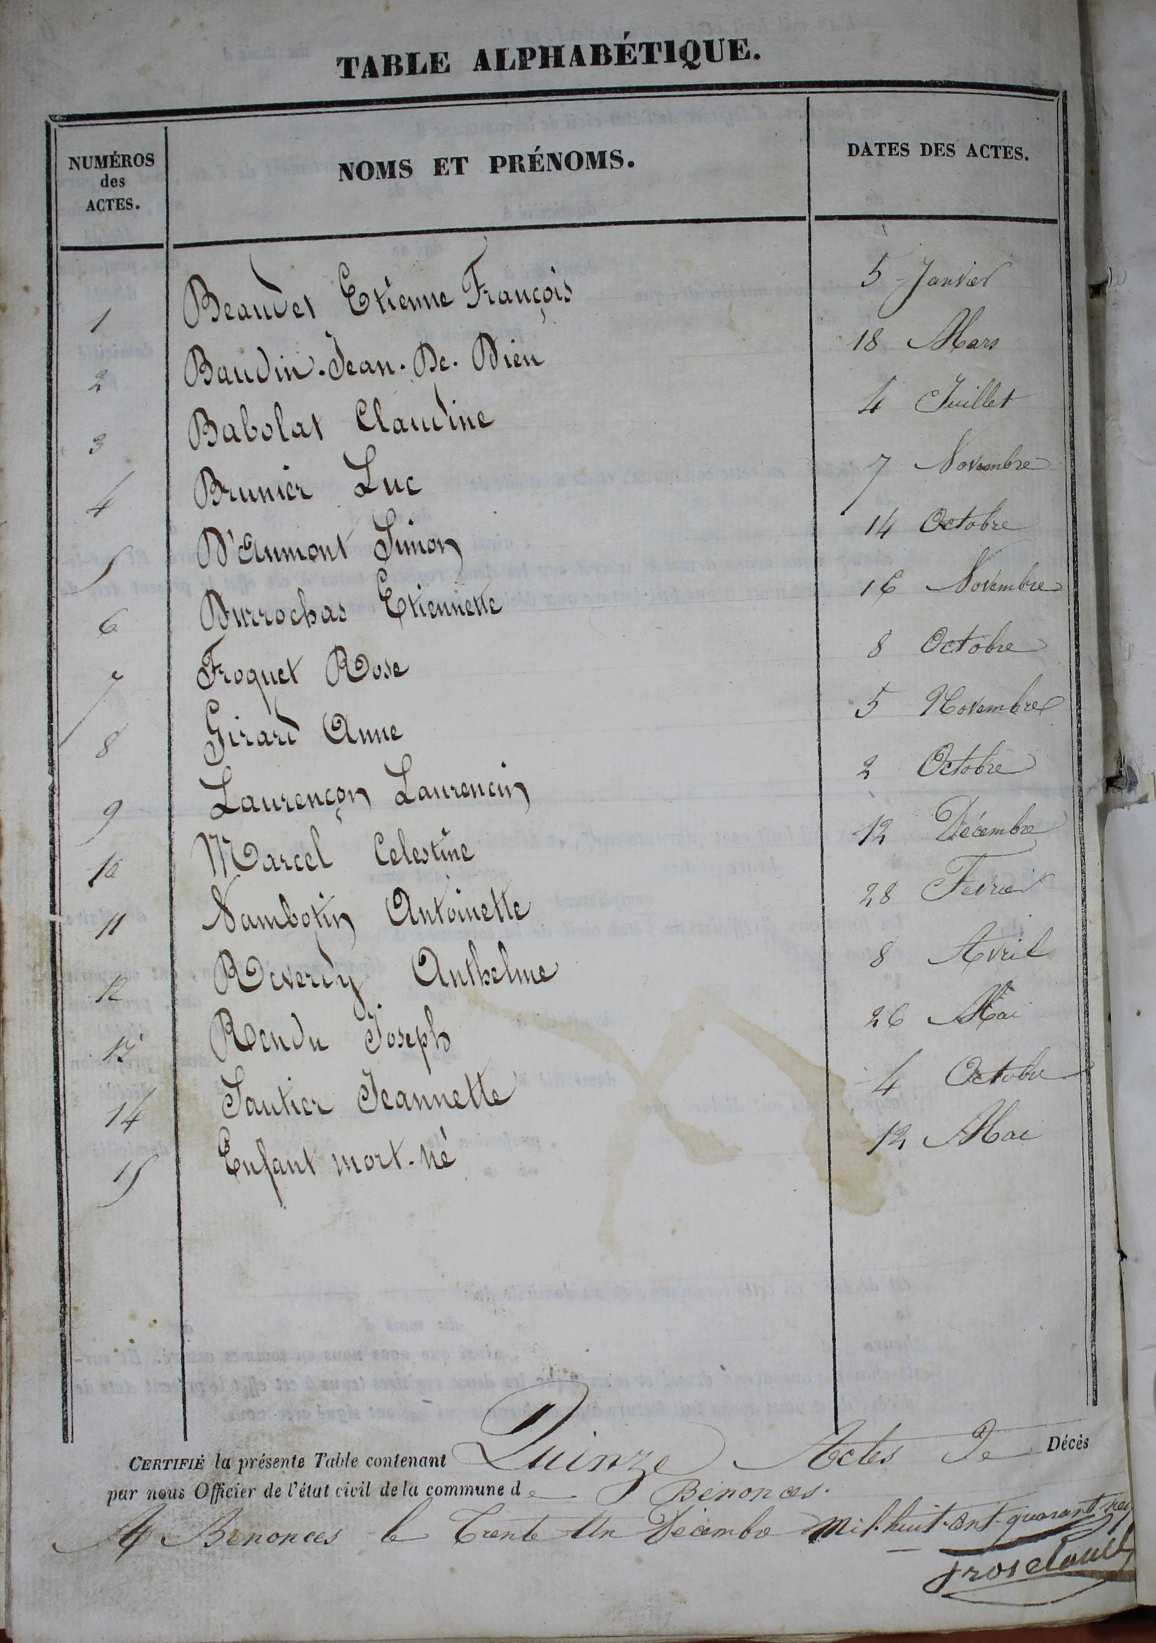 TABLE ALPHABÉTIQUE.
NUMÉROS des ACTES. NOMS ET PRÉNOMS. DATES DES ACTES.
1 Beaudet Etienne François 5 Janvier
2 Baudin. Jean. De. Dieu 18 Mars
3 Babolat Claudine 4 Juillet
4 Brunier Luc 7 Novembre
5 D'Aumont Simon 14 Octobre
6 Durrochas Etiennette 16 Novembre
7 Froquet Rose 8 Octobre
8 Girard Anne 5 Novembre
9 Laurençon Laurencin 2 Octobre
10 Marcel Celestine 12 Décembre
11 Nambotin Antoinette 28 Fevrier
12 Reverdy Anthelme 8 Avril
13 Rendu Joseph 26 Mai
14 Sautier Jeannette 4 Octobre
15 Enfant mort-né 12 Mai
CERTIFIÉ la présente Table contenant Quinze Actes De Décès
par nous Officier de l'état civil de la commune de Benonces.
A Benonces le Trente Un Décembre Mil-huit-cent-quarante